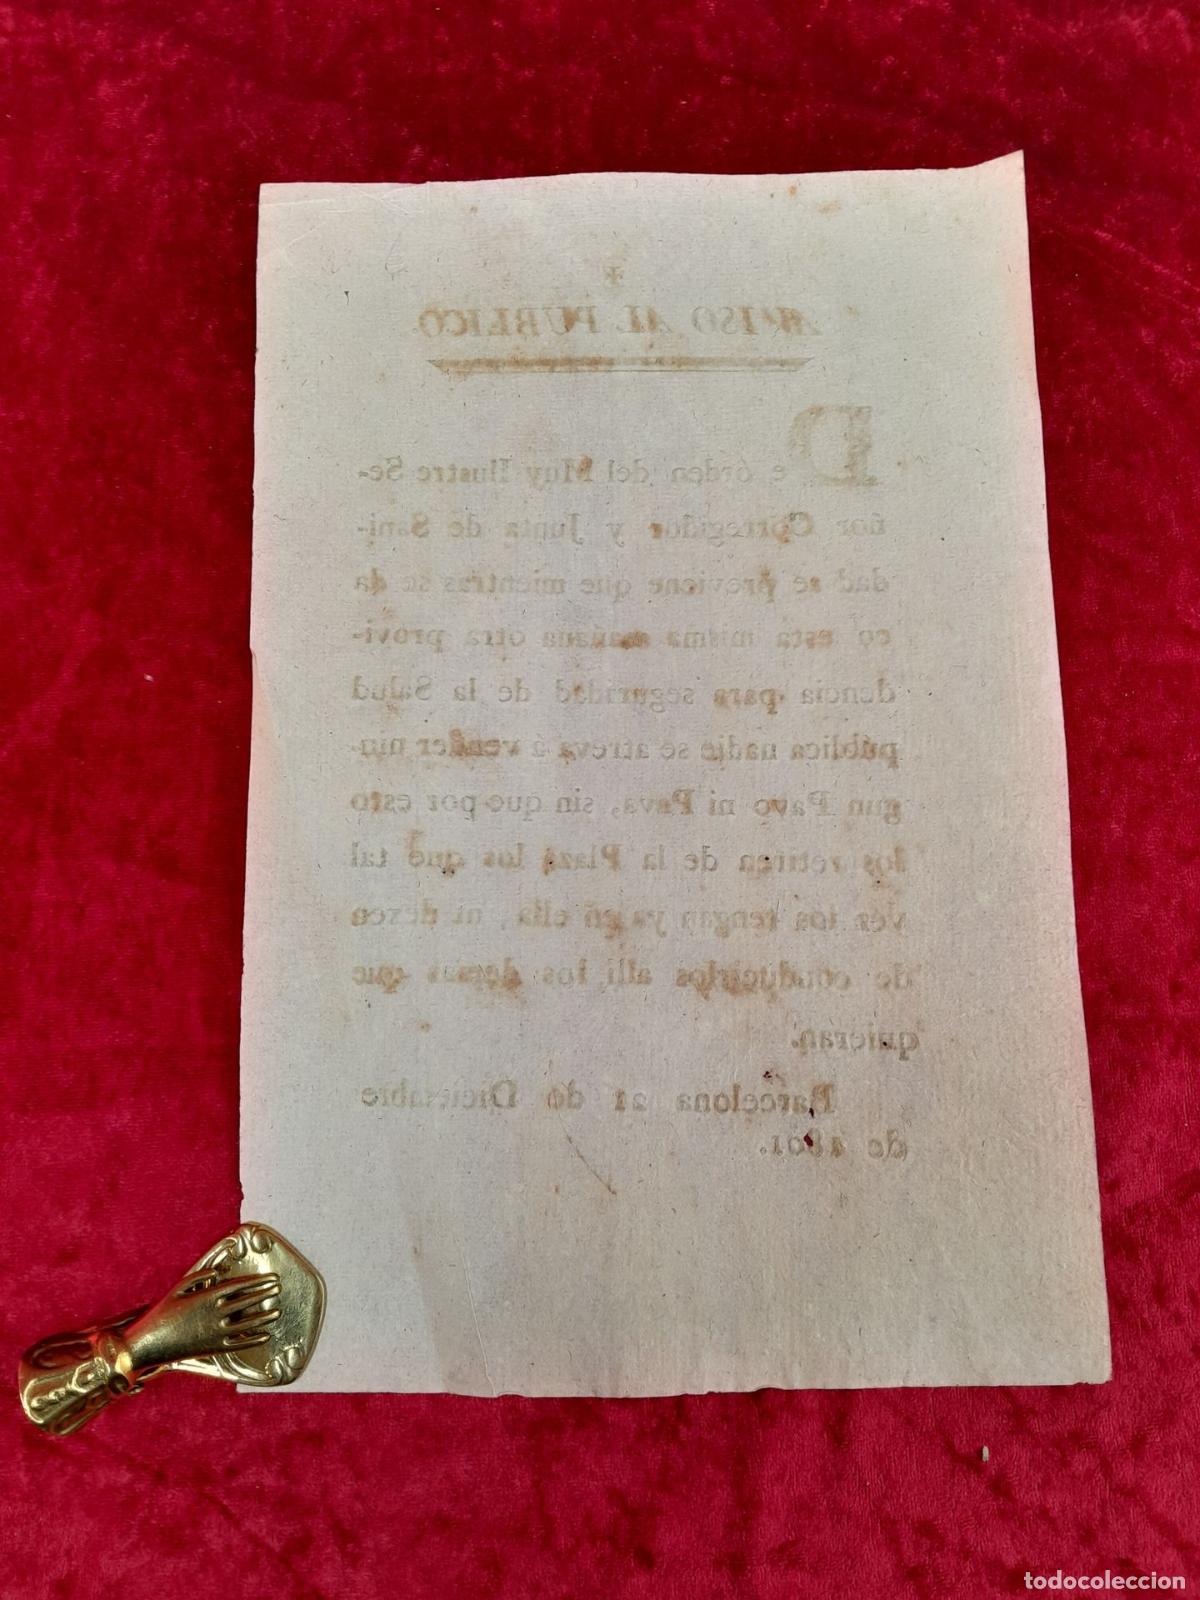 ✝
AVISO AL PUBLICO.
De órden del Muy Ilustre Se-
ñor Corregidor y Junta de Sani-
dad se previene que mientras se da
en esta misma mañana otra provi-
dencia para seguridad de la Salud
pública nadie se atreva á vender nin-
gun Pavo ni Pava, sin que por esto
los retiren de la Plaza los que tal
vez los tengan ya en ella, ni dexen
de conducirlos allí los demas que
quieran.
Barcelona 21 de Diciembre
de 1801.
todocoleccion